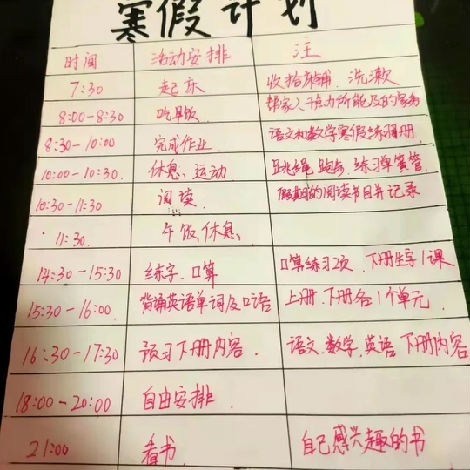 寒假计划
时间 活动安排 注
7:30 起床 收拾床铺、洗漱
8:00-8:30 吃早饭 帮家人干力所能及的家务
8:30-10:00 完成作业 语文和数学寒假练习册
10:00-10:30 休息、运动 跳绳、跑步、练习弹簧管
10:30-11:30 阅读、 假期的阅读书目并记录
11:30. 午饭、休息、
14:30-15:30 练字、口算 口算练习2页、下册生字1课
15:30-16:00 背诵英语单词及口语 上册、下册各1个单元、
16:30-17:30 预习下册内容、 语文、数学、英语、下册内容
18:00-20:00 自由安排、
21:00 看书 自己感兴趣的书